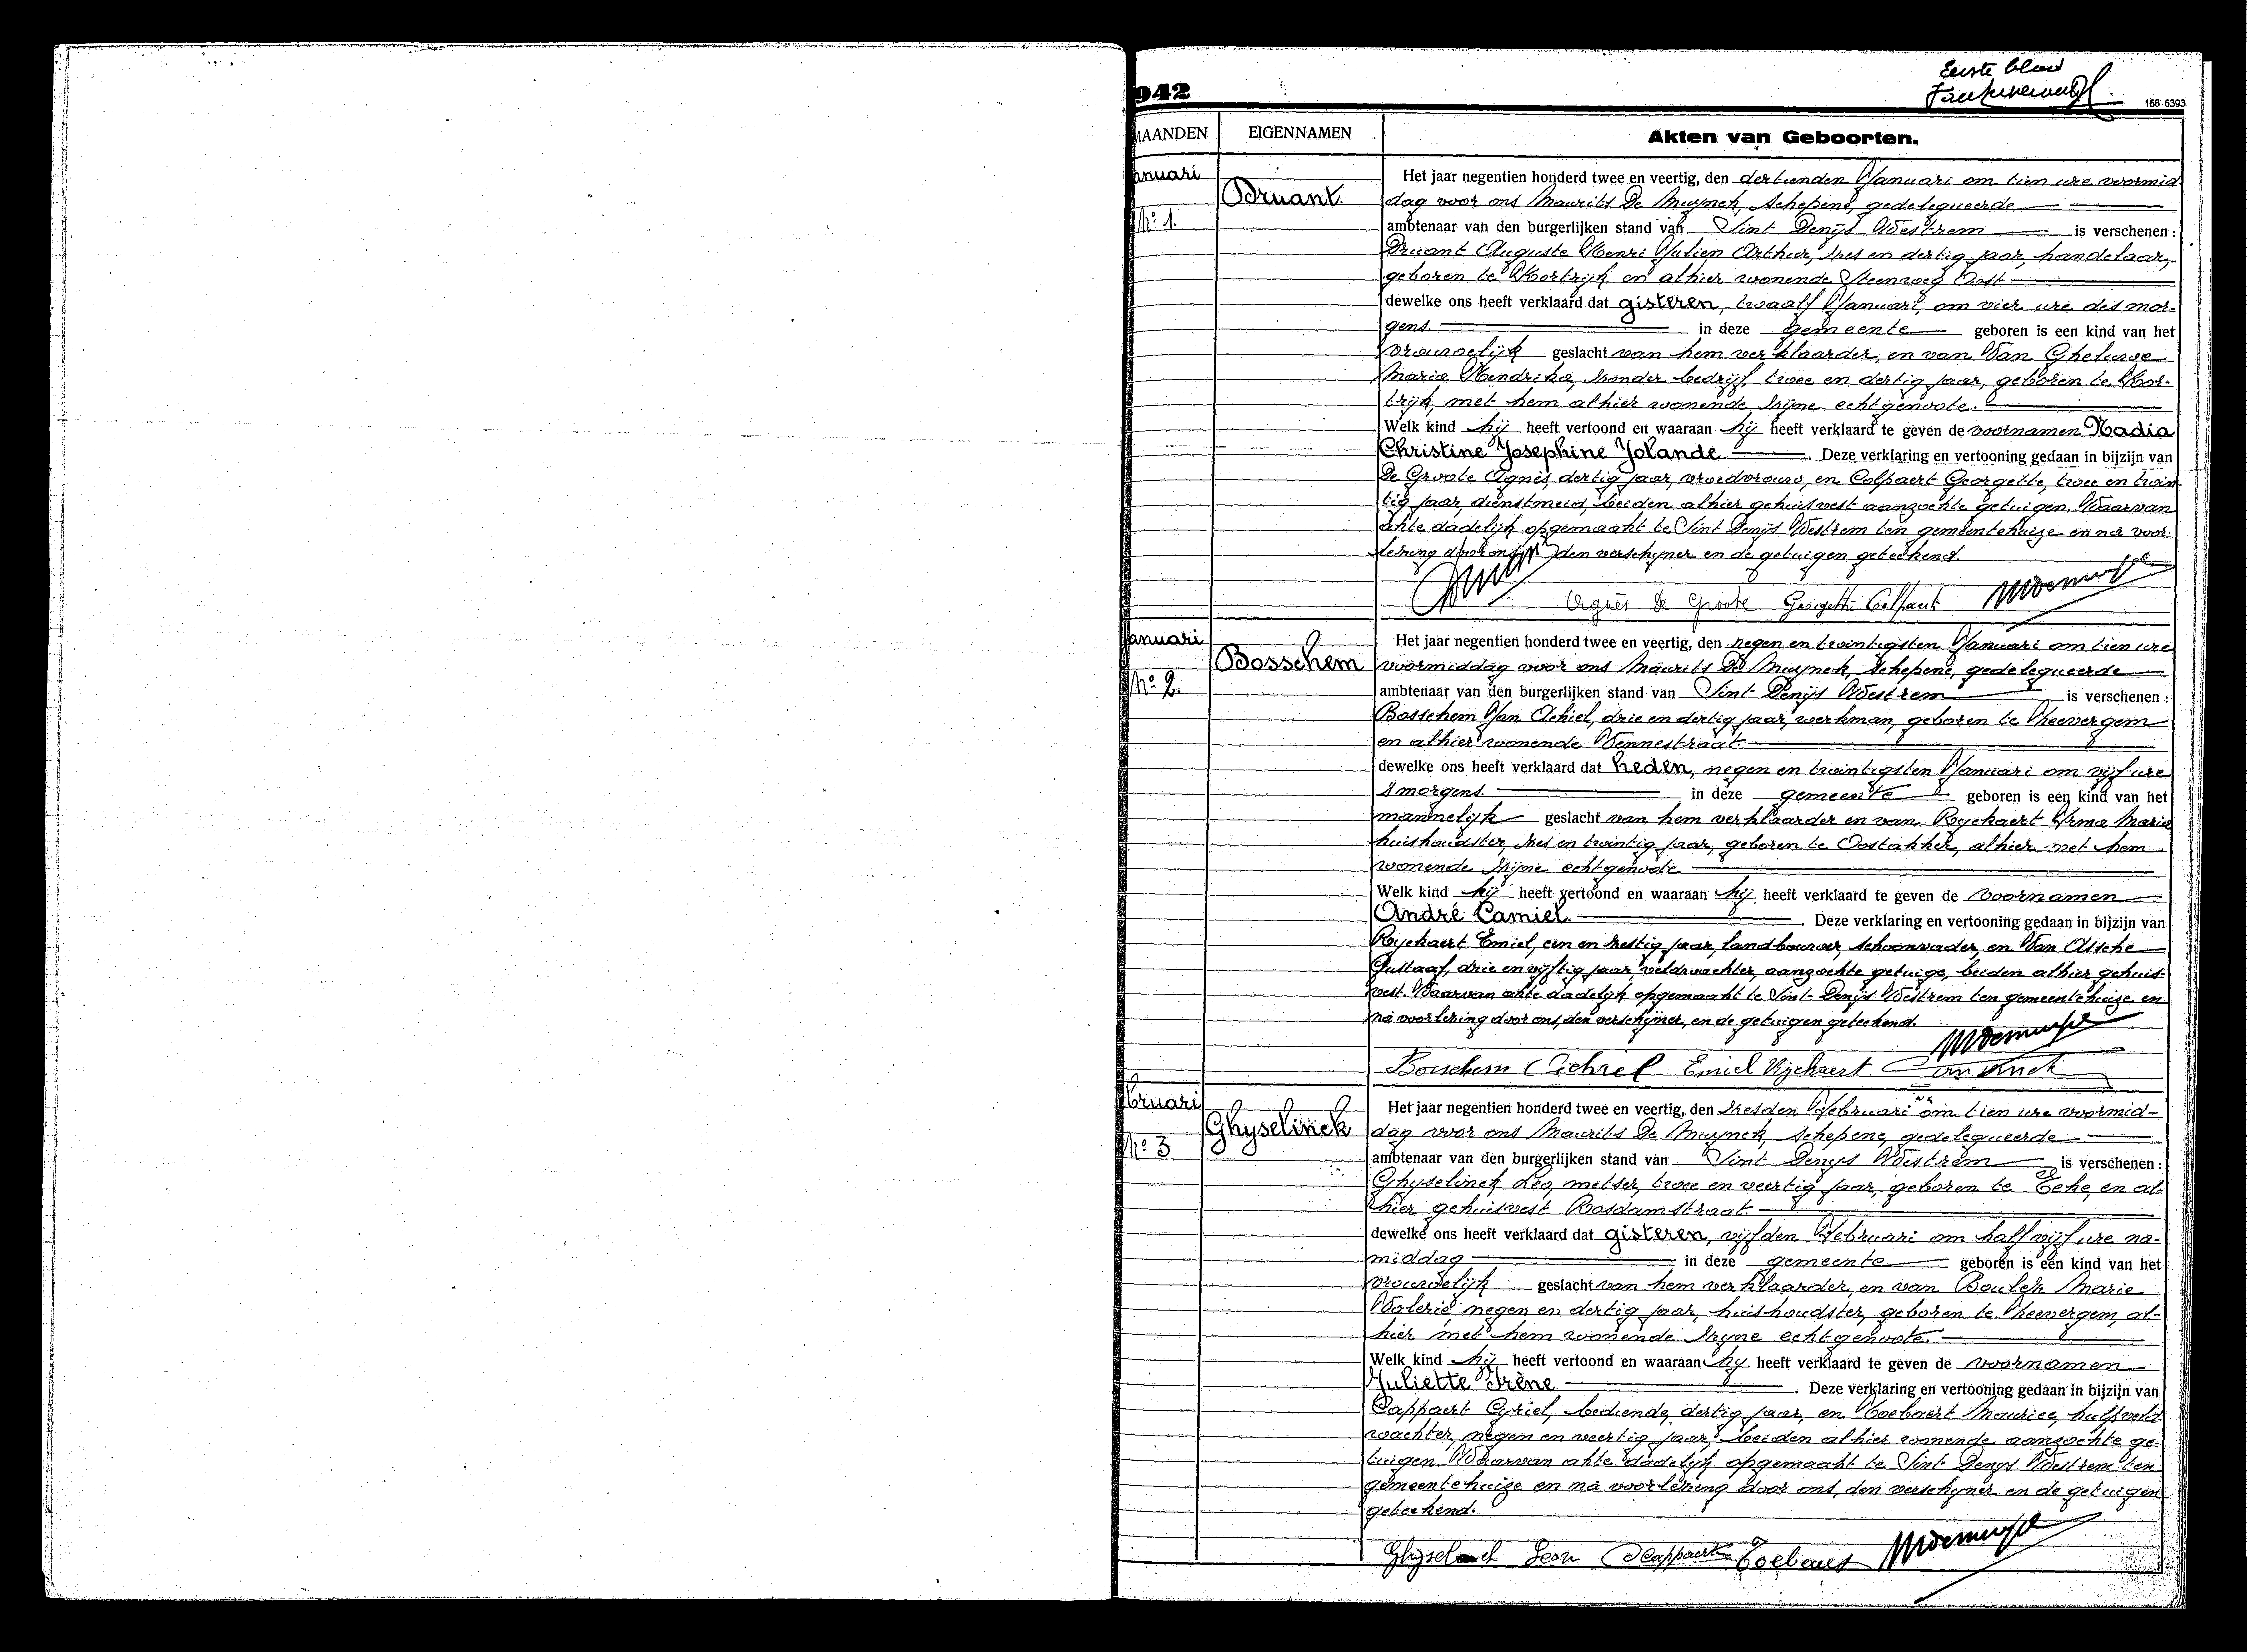 Eerste blad
942
168 6393
MAANDEN EIGENNAMEN Akten van Geboorten.
Januari
Druant.
No 1.
Het jaar negentien honderd twee en veertig, den dertienden Januari om tien ure voormid
dag voor ons Maurits De Muynck, Schepene, gedelegueerde
ambtenaar van den burgerlijken stand van Sint Denijs Westrem is verschenen :
Druant Auguste Henri Julien Arthur, zes en dertig jaar, handelaar,
geboren te Kortrijk en alhier wonende Steenweg Oost
dewelke ons heeft verklaard dat gisteren, twaalf Januari, om vier ure des mor-
gens. in deze gemeente geboren is een kind van het
vrouwelijk geslacht van hem verklaarder, en van Van Gheluwe
Maria Hendrika, zonder bedrijf, twee en dertig jaar, geboren te Kor-
trijk, met hem alhier wonende zijne echtgenoote.
Welk kind hij heeft vertoond en waaraan hij heeft verklaard te geven de voornamen Nadia
Christine Josephine Yolande. Deze verklaring en vertooning gedaan in bijzijn van
De Groote Agnès, dertig jaar, vroedvrouw, en Colpaert Georgette, twee en twin
tig jaar, dienstmeid, beiden alhier gehuisvest aanzochte getuigen. Waarvan
akte dadelijk opgemaakt te Sint Denijs Westrem ten gemeentehuize en na voor-
lezing door ons, den verschijner en de getuigen geteekend.
Agnès De Groote Georgette Colpaert MDemuynck
Januari
Bosschem
No 2.
Het jaar negentien honderd twee en veertig, den negen en twintigsten Januari om tien ure
voormiddag voor ons Maurits De Muynck, Schepene, gedelegueerde
ambtenaar van den burgerlijken stand van Sint Denijs Westrem is verschenen :
Bosschem Jan Achiel, drie en dertig jaar, werkman, geboren te Zheevergem
en alhier wonende Vennestraat.
dewelke ons heeft verklaard dat heden, negen en twintigsten Januari om vijf ure
s morgens. in deze gemeente geboren is een kind van het
mannelijk geslacht van hem verklaarder en van Ryckaert Irma Maria
huishoudster, zes en twintig jaar, geboren te Oostakker, alhier met hem
wonende zijne echtgenoote
Welk kind hij heeft vertoond en waaraan hij heeft verklaard te geven de voornamen
André Camiel. Deze verklaring en vertooning gedaan in bijzijn van
Ryckaert Emiel, een en zestig jaar, landbouwer, schoonvader, en Van Assche
Gustaaf, drie en vijftig jaar, veldwachter, aanzochte getuige, beiden alhier gehuis-
vest. Waarvan akte dadelijk opgemaakt te Sint-Denijs Westrem ten gemeentehuize en
na voorlezing door ons, den verschijner, en de getuigen geteekend.
MDemuynck
Bosschem Achiel Emiel Ryckaert
Februari
Ghyselinck
No 3
Het jaar negentien honderd twee en veertig, den zesden Februari om tien ure voormid-
dag voor ons Maurits De Muynck, Schepene, gedelegueerde
ambtenaar van den burgerlijken stand van Sint Denijs Westrem is verschenen :
Ghyselinck Leo, metser, twee en veertig jaar, geboren te Eeke, en al-
hier gehuisvest Bosdamstraat.
dewelke ons heeft verklaard dat gisteren, vijfden Februari om half vijf ure na-
middag in deze gemeente geboren is een kind van het
vrouwelijk geslacht van hem verklaarder, en van Boulez Marie
Valerie negen en dertig jaar, huishoudster, geboren te Zheevergem, al-
hier met hem wonende zijne echtgenoote.
Welk kind hij heeft vertoond en waaraan hij heeft verklaard te geven de voornamen
Juliette Irène. Deze verklaring en vertooning gedaan in bijzijn van
Dappaert Cyriel, bediende, dertig jaar, en Coebaert Maurice, hulpveld
wachter, negen en veertig jaar, beiden alhier wonende aanzochte ge-
tuigen. Waarvan akte dadelijk opgemaakt te Sint Denijs Westrem ten
gemeentehuize en na voorlezing door ons, den verschijner en de getuigen
geteekend.
Ghyselinck Leon Dappaert Coebaert MDemuynck